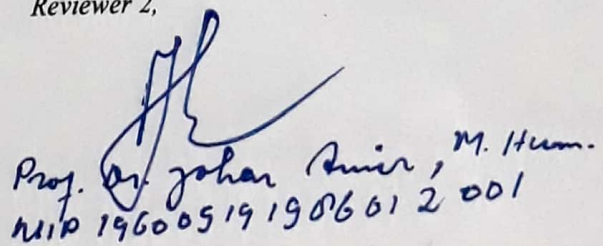 Reviewer 2,
Prof. Dr. Johar Amir, M. Hum.
NIP 19600919 198601 2 001